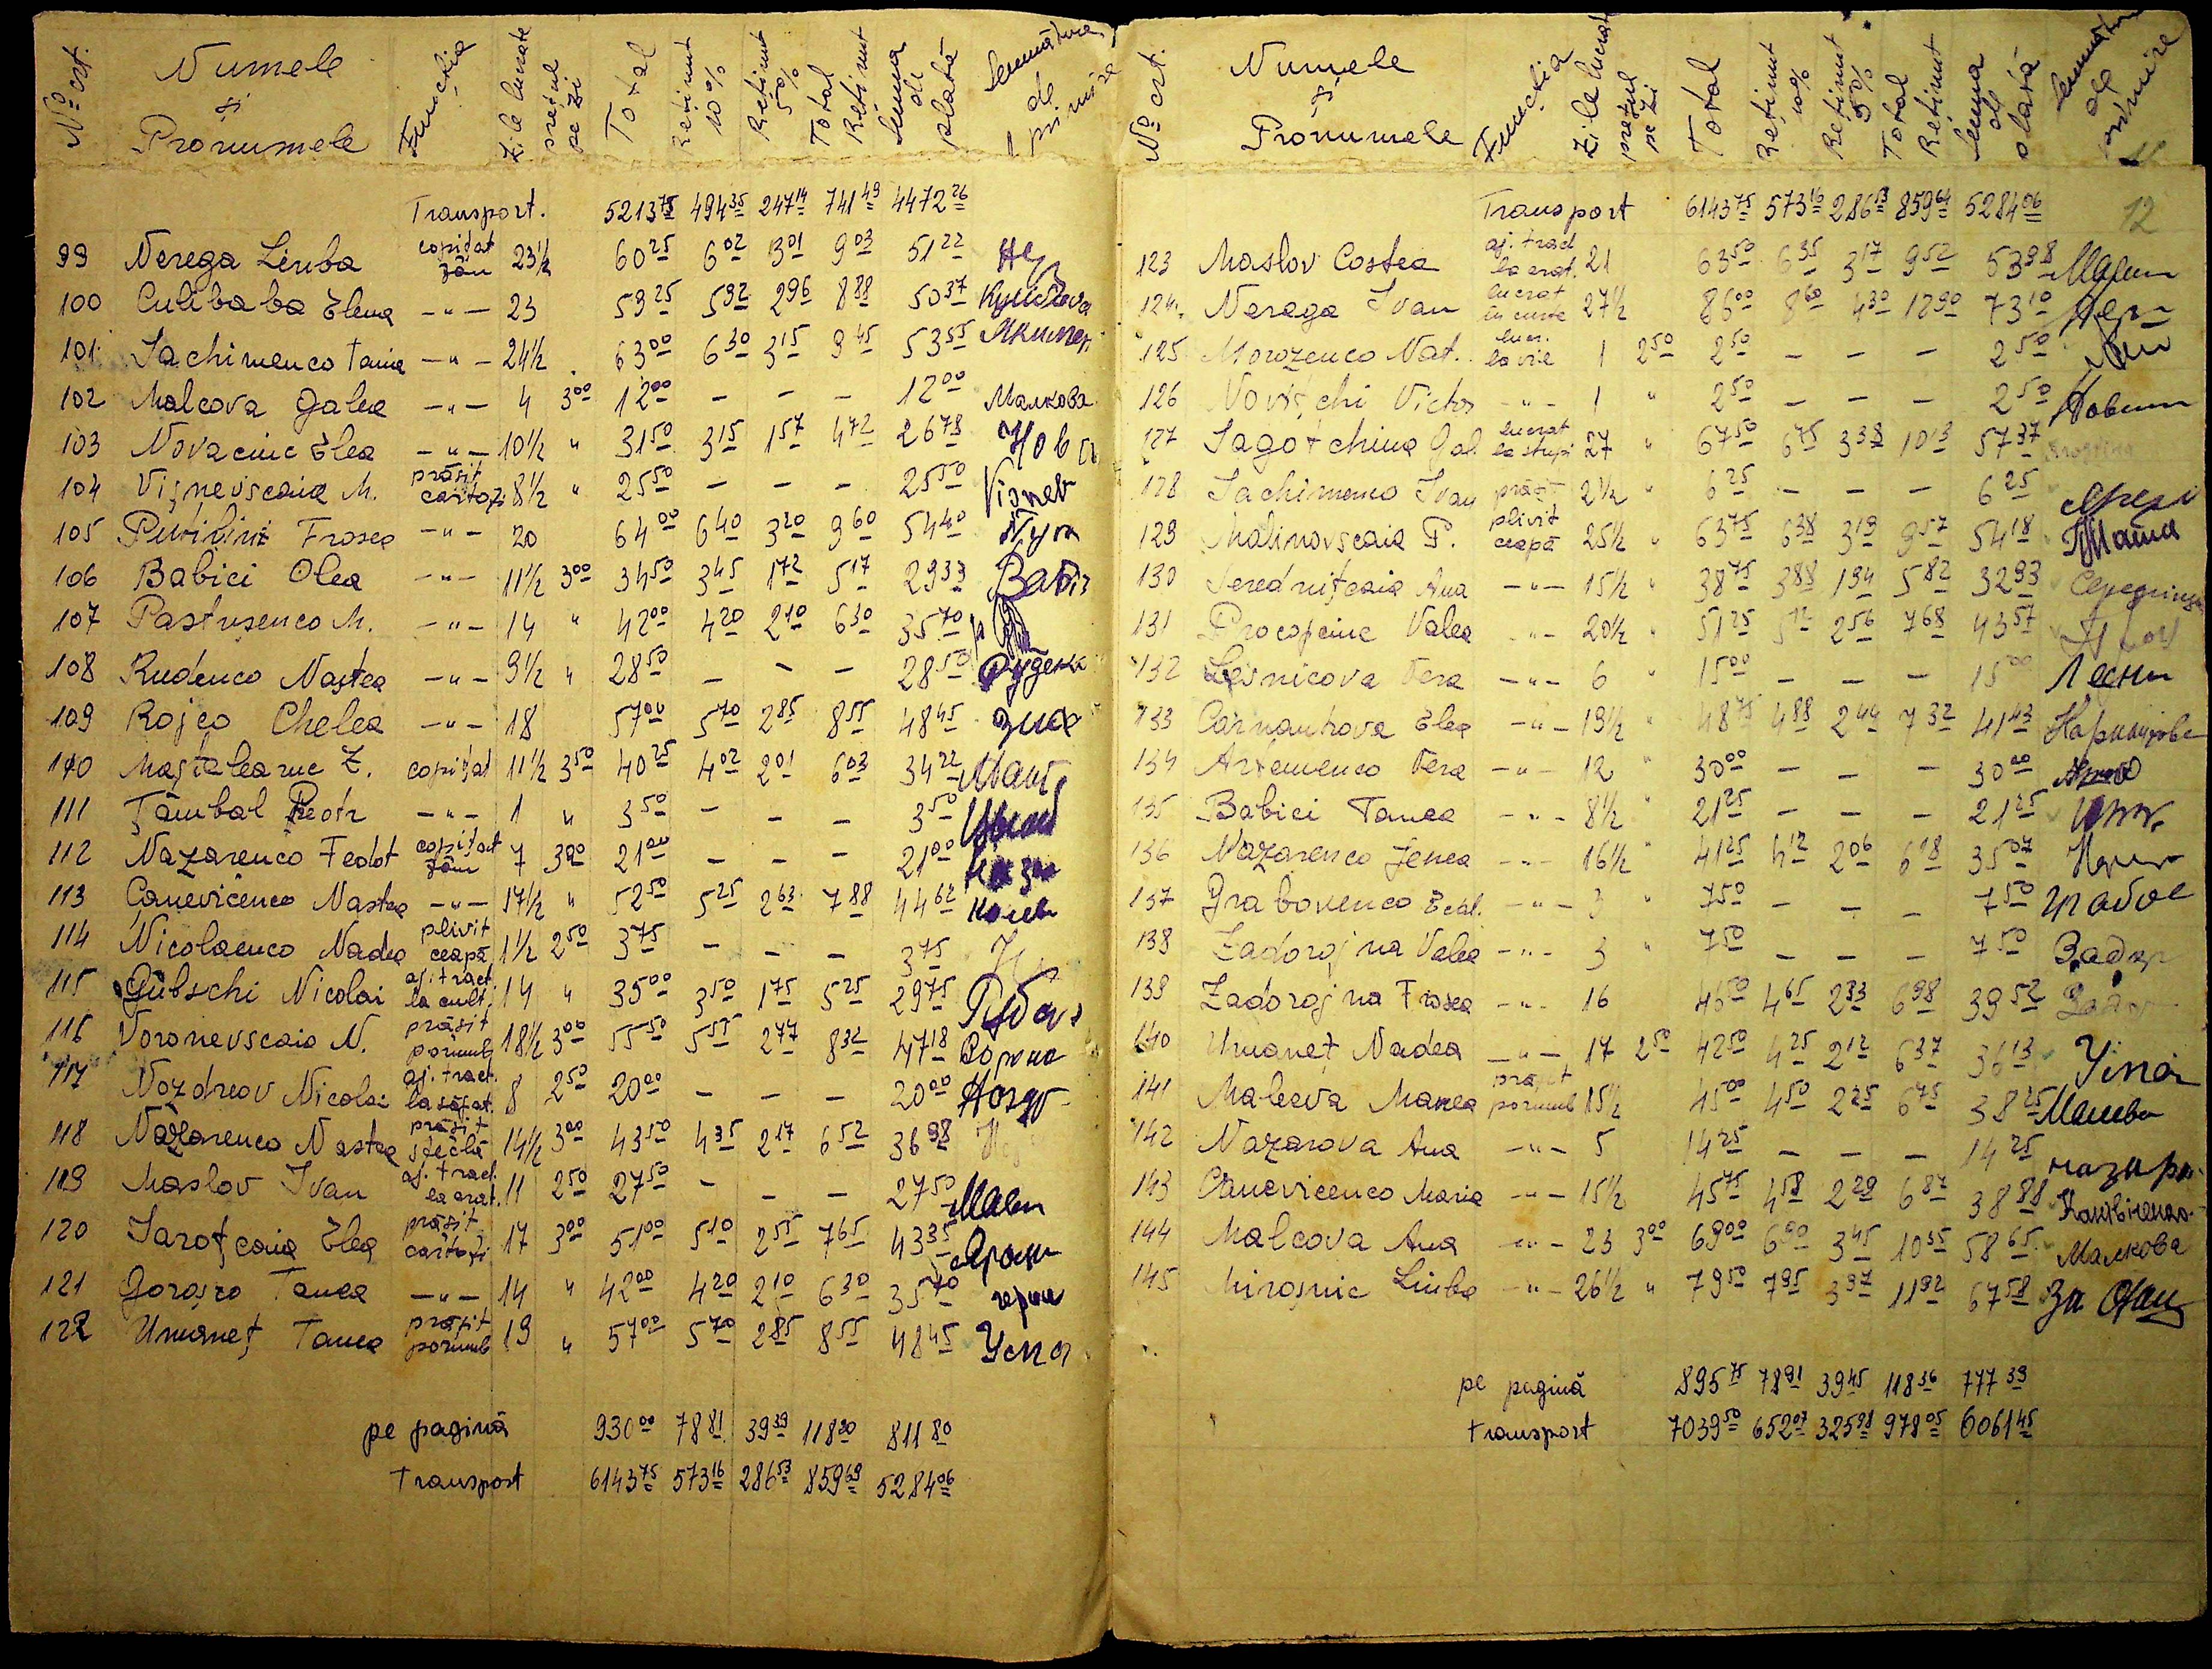 No crt. Numele și Pronumele Funcția Zile lucrate prețul pe zi Total Reținut 10% Reținut 5% Total Reținut Suma de plată Semnătura de primire
Transport. 5213 75 494 35 247 14 741 49 4472 26
99 Nerega Liuba copitat fân 23½ 60 25 6 02 3 01 9 03 51 22
100 Culibaba Elena -"- 23 59 25 5 92 2 96 8 88 50 37
101 Iachimenco Tania -"- 24½ 63 00 6 30 3 15 9 45 53 55
102 Malcova Galea -"- 4 3 00 12 00 - - - 12 00 Малкова
103 Novaciuc Elea -"- 10½ " 31 50 3 15 1 57 4 72 26 78 Нова
104 Vișnevscaia M. prășit cartofi 8½ " 25 50 - - - 25 50 Visnev
105 Frosea -"- 20 64 00 6 40 3 20 9 60 54 40
106 Babici Olea -"- 11½ 3 00 34 50 3 45 1 72 5 17 29 33
107 Pastusenco M. -"- 14 " 42 00 4 20 2 10 6 30 35 70
108 Rudenco Nastea -"- 9½ " 28 50 - - - 28 50 Руденк
109 Rojco Chelea -"- 18 57 00 5 70 2 85 8 55 48 45
110 Maștaleariuc Z. copitat 11½ 3 50 40 25 4 02 2 01 6 03 34 22
111 Țâmbal Piotr -"- 1 " 3 50 - - - 3 50
112 Nazarenco Feodot copitat fân 7 3 00 21 00 - - - 21 00
113 Canevicenco Nastea -"- 17½ " 52 50 5 25 2 63 7 88 44 62
114 Nicolaenco Nadea plivit ceapă 1½ 2 50 3 75 - - - 3 75
115 Gubschi Nicolai aj. tract. la cult. 14 " 35 00 3 50 1 75 5 25 29 75
116 Voronevscaia N. prășit porumb 18½ 3 00 55 50 5 55 2 77 8 32 47 18
117 Nozdreov Nicolai aj. tract. 8 2 50 20 00 - - - 20 00
118 Nazarenco Nastea prășit sfeclă 14½ 3 00 43 50 4 35 2 17 6 52 36 98
119 Maslov Ivan aj. tract. la arat. 11 2 50 27 50 - - - 27 50
120 Iaroțcaia Elea prășit cartofi 17 3 00 51 00 5 10 2 55 7 65 43 35
121 Gorașco Tanea -"- 14 " 42 00 4 20 2 10 6 30 35 70
122 Umaneț Tanea prășit porumb 19 " 57 00 5 70 2 85 8 55 48 45
pe pagină 930 00 78 81 39 39 118 20 811 80
Transport 6143 75 573 16 286 53 859 69 5284 06
No crt. Numele și Pronumele Funcția Zile lucrate prețul pe zi Total Reținut 10% Reținut 5% Total Reținut Suma de plată Semnătura de primire
12
Transport 6143 75 573 16 286 53 859 69 5284 06
123 Maslov Costea aj. tract la arat. 21 63 50 6 35 3 17 9 52 53 98
124 Nerega Ivan lucrat 27½ 86 00 8 60 4 30 12 90 73 10
125 Morozenco Nat. lucr. la vie 1 2 50 2 50 - - - 2 50
126 Novițchi Victor -"- 1 " 2 50 - - - 2 50
127 Iagotchina Gal. lucrat la stupi 27 " 67 50 6 75 3 38 10 13 57 37
128 Iachimenco Ivan prășit 2½ " 6 25 - - - 6 25
129 Malinovscaia P. plivit ceapă 25½ " 63 75 6 38 3 19 9 57 54 18
130 Serednițcaia Ana -"- 15½ " 38 75 3 88 1 94 5 82 32 93
131 Procopciuc Valea -"- 20½ " 51 25 5 12 2 56 7 68 43 57
132 Lesnicova Vera -"- 6 " 15 00 - - - 15 00 Лесни
133 Carnauhova Elea -"- 19½ " 48 75 4 88 2 44 7 32 41 43
134 Artemenco Vera -"- 12 " 30 00 - - - 30 00
135 Babici Tanea -"- 8½ 21 25 - - - 21 25
136 Nazarenco Jenea -"- 16½ 41 25 4 12 2 06 6 18 35 07
137 Grabovenco Ecat. -"- 3 " 7 50 - - - 7 50
138 Zadorojna Valea -"- 3 " 7 50 - - - 7 50
139 Zadorojna Frosea -"- 16 46 50 4 65 2 33 6 98 39 52
140 Umaneț Nadea -"- 17 2 50 42 50 4 25 2 12 6 37 36 13
141 Maleeva Manea prășit porumb 15½ 45 00 4 50 2 25 6 75 38 25
142 Nazarova Ana -"- 5 14 25 - - - 14 25
143 Canevicenco Maria -"- 15½ 45 75 4 58 2 29 6 87 38 88
144 Malcova Ana -"- 23 3 00 69 00 6 90 3 45 10 35 58 65 Малкова
145 Miroșnic Liuba -"- 26½ " 79 50 7 95 3 97 11 92 67 58
pe pagină 895 75 78 91 39 45 118 36 777 39
Transport 7039 50 652 07 325 98 978 05 6061 45